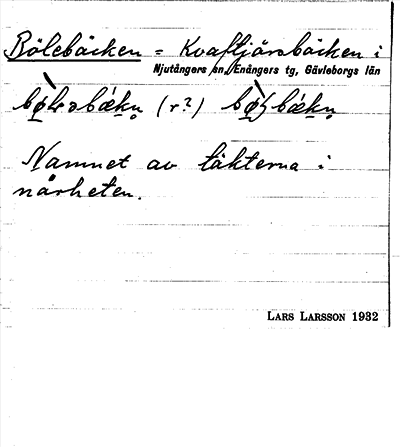 Bölebäcken = Kvaftjärnbäcken i
Njutångers sn, Enångers tg, Gävleborgs län
(r?)
Namnet av täkterna i
närheten.
LARS LARSSON 1932